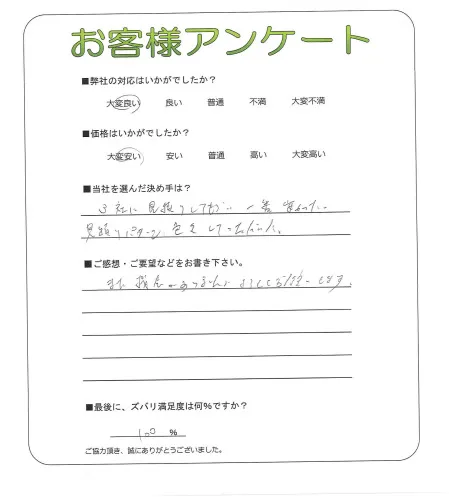 お客様アンケート
■弊社の対応はいかがでしたか？
大変良い 良い 普通 不満 大変不満
■価格はいかがでしたか？
大変安い 安い 普通 高い 大変高い
■当社を選んだ決め手は？
3社に見積りしてもらい 一番
見積りパターン
■ご感想・ご要望などをお書き下さい。
また機会がありましたら
■最後に、ズバリ満足度は何%ですか？
100 %
ご協力頂き、誠にありがとうございました。